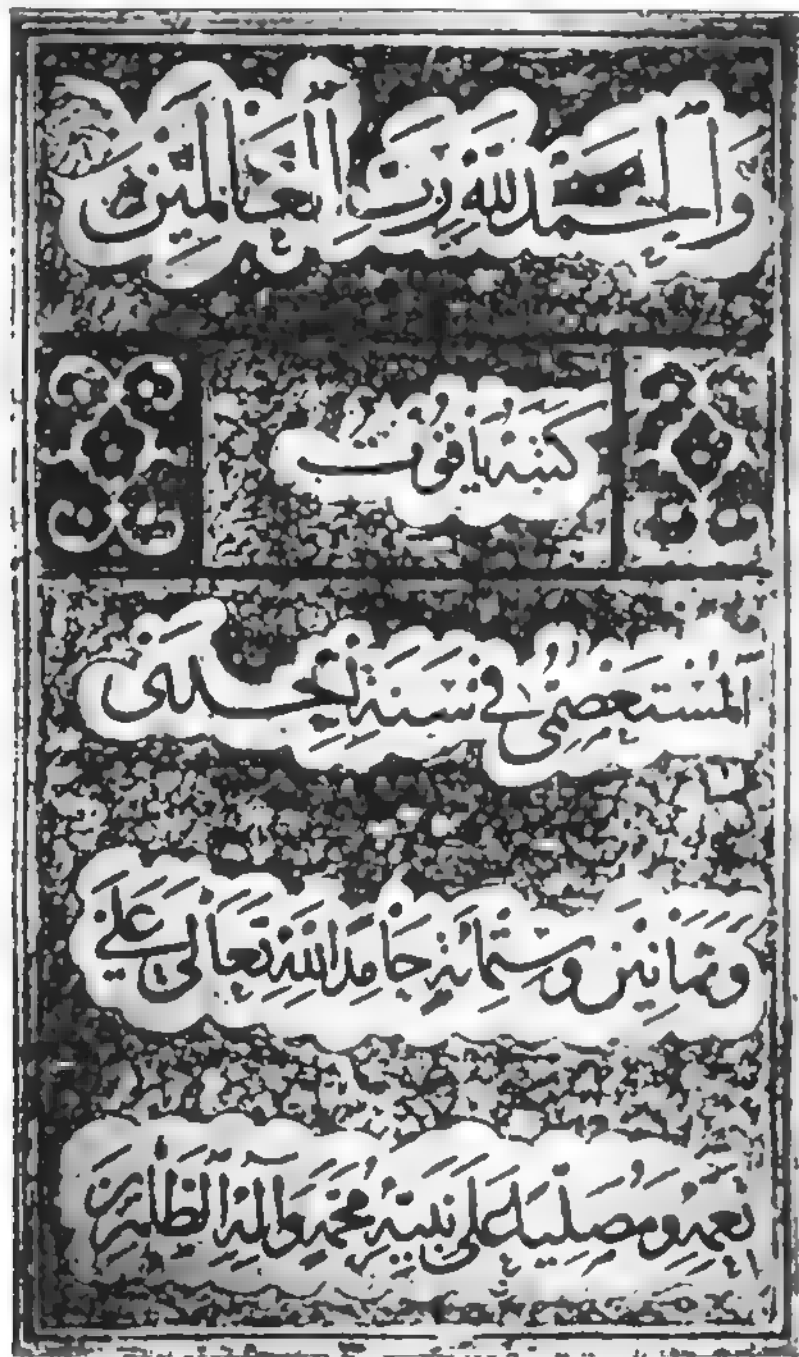 وَالْحَمْدُ لِلّٰهِ رَبِّ الْعَالَمِيْنَ
كَتَبَهُ يَاقُوْتُ
الْمُسْتَعْصِمِيُّ فِي سَنَةِ اِحْدٰى
وَثَمَانِيْنَ وَسِتِّمِائَةٍ حَامِدًا لِلّٰهِ تَعَالٰى عَلٰى
نِعَمِهِ وَمُصَلِّيًا عَلٰى نَبِيِّهِ مُحَمَّدٍ وَاٰلِهِ الطَّاهِرِيْنَ